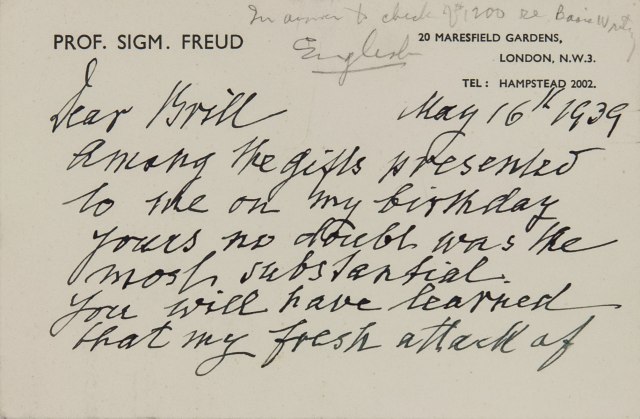 In answer to check of 1200 re Basic Writ
English
PROF. SIGM. FREUD
20 MARESFIELD GARDENS,
LONDON, N.W.3.
TEL: HAMPSTEAD 2002.
Dear Brill May 16th 1939
Among the gifts presented
to me on my birthday
yours no doubt was the
most substantial.
You will have learned
that my fresh attack of